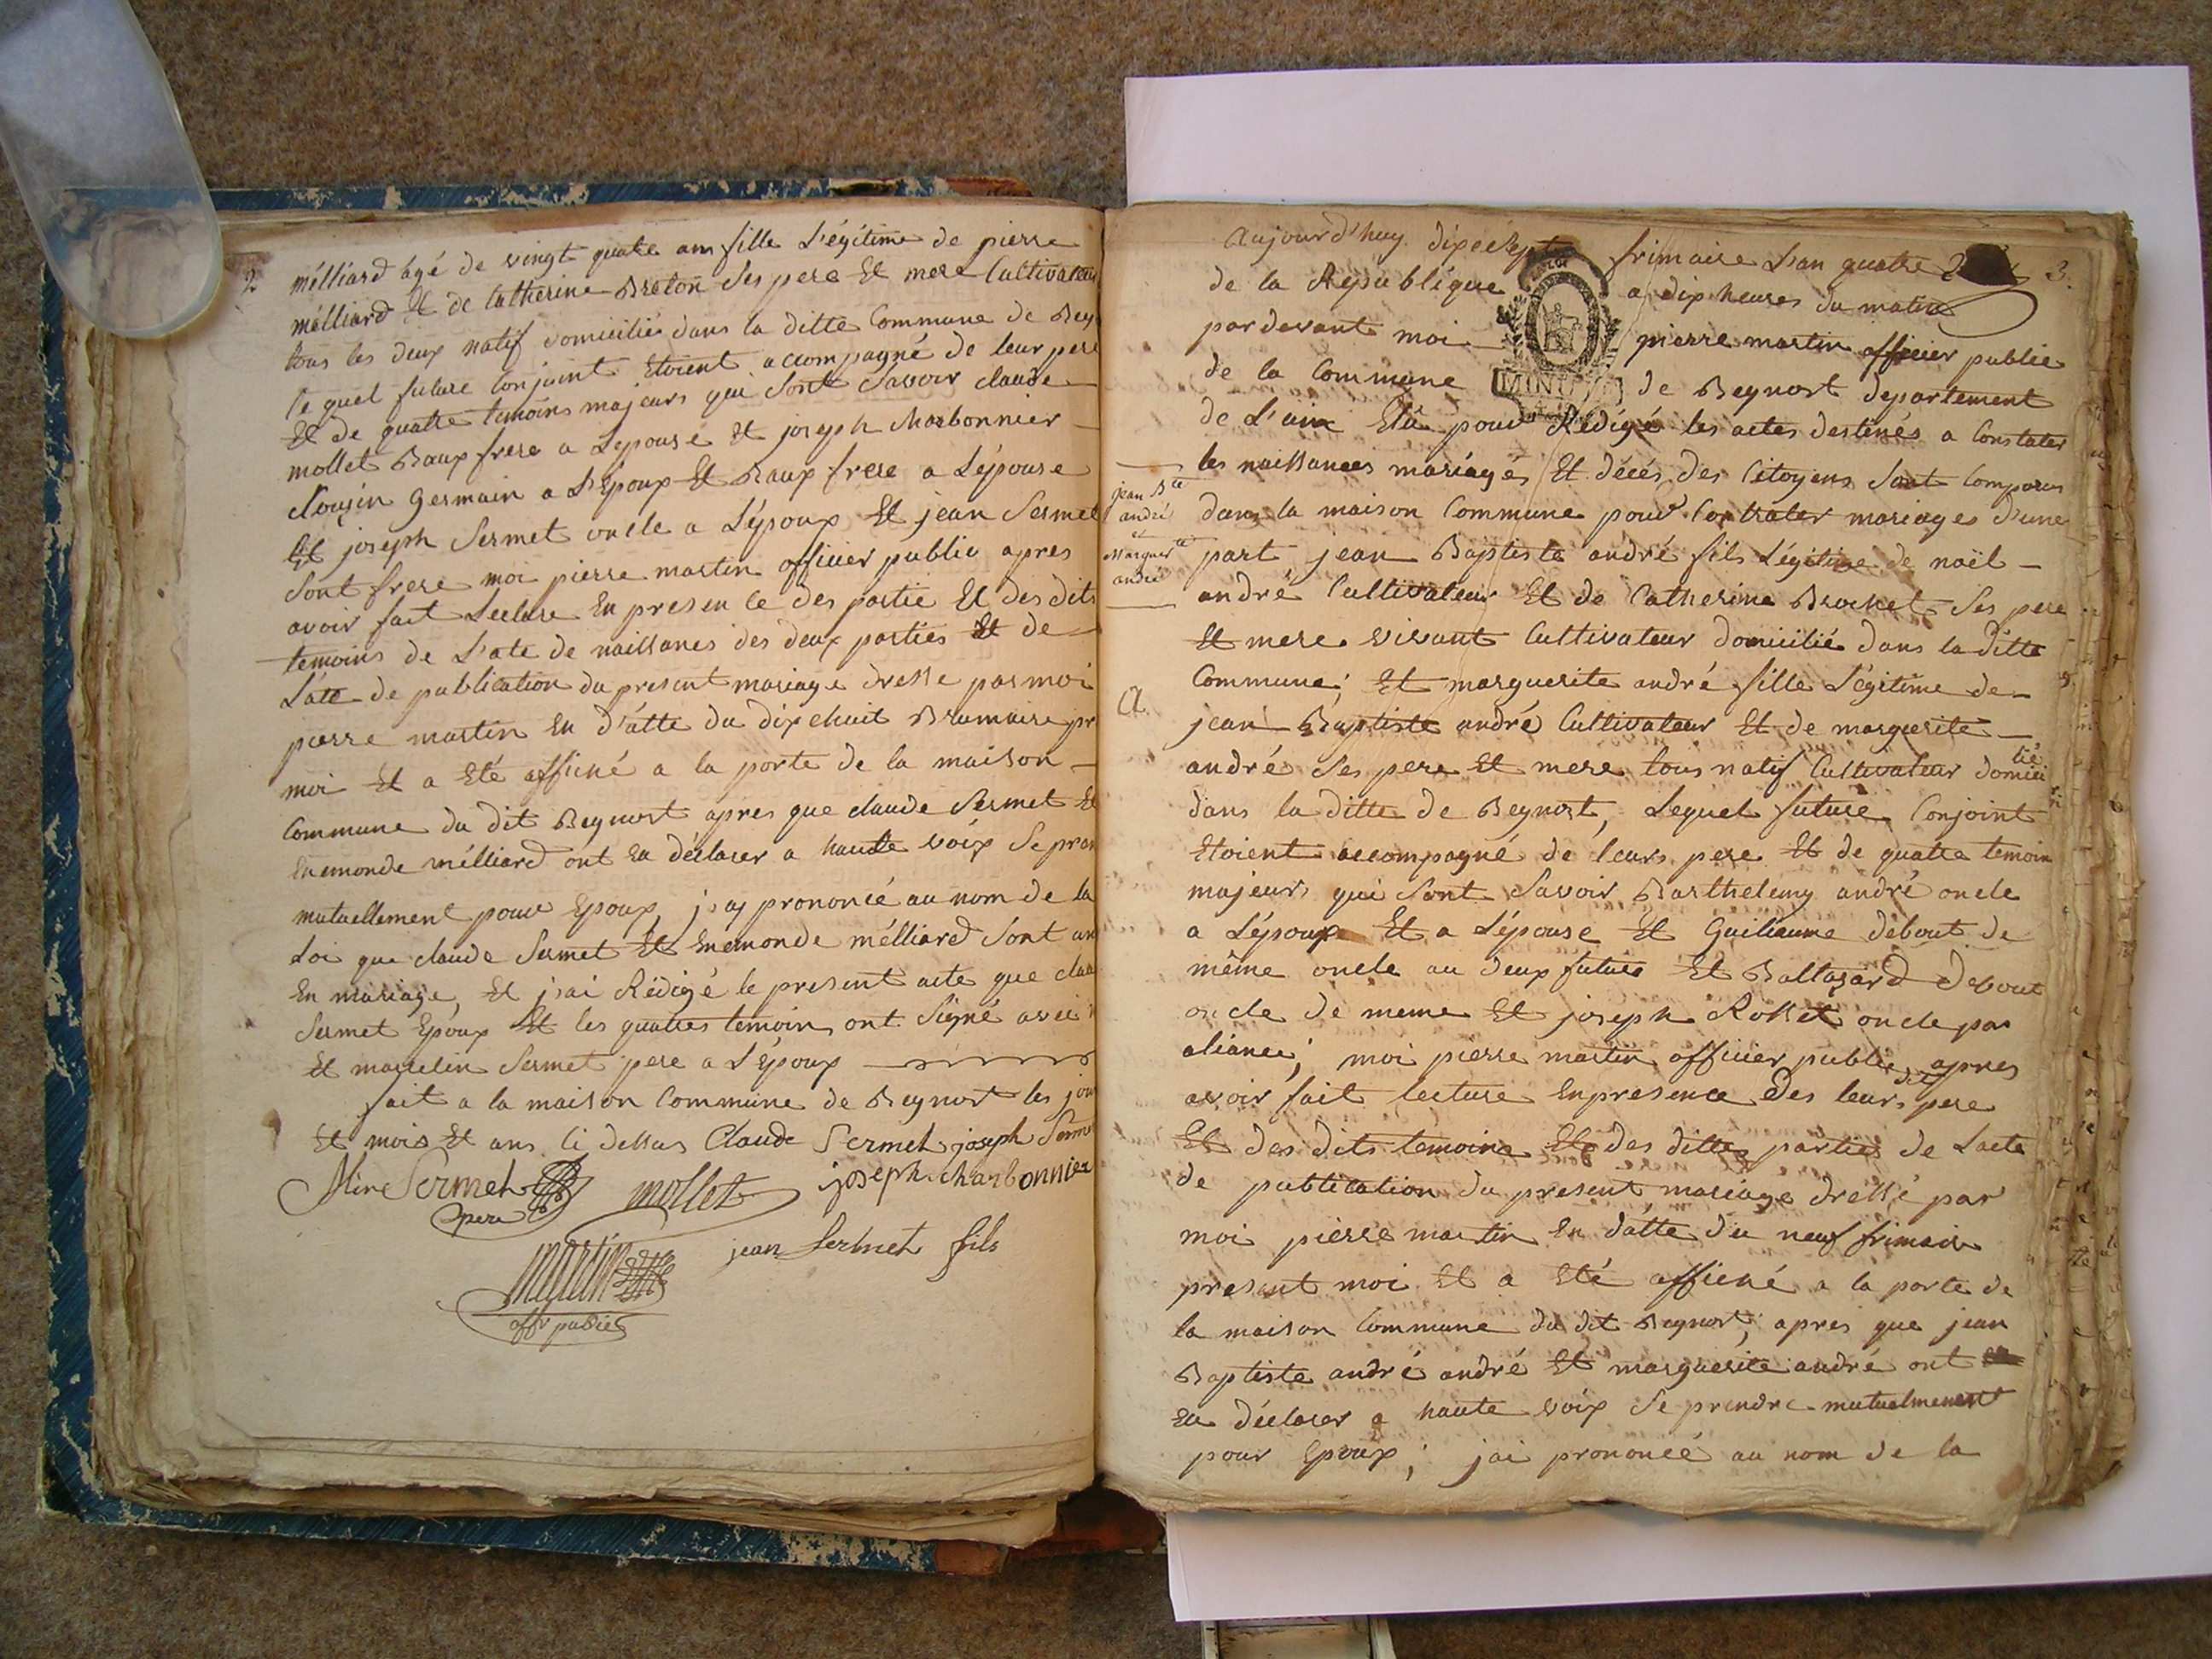 2
mélliard âgé de vingt quatre ans fille L'égitime de pierre
mélliard Et de Catherine Breton Ses pere Et mere Cultivateur
tous les deux natif domicilié dans la ditte Commune de Bey
le quel future Conjoint Etoient accompagné de leur pere
Et de quatre temoins majeurs qui Sont Savoir claude
mollet Baux frere a Lepouse Et joseph charbonnier
Couzin Germain a L'Epoux Et Baux frere a Lépouse
Et joseph Sermet oncle a L'époux Et jean Sermet
Sont frere moi pierre martin officier public apres
avoir fait Lecture En presen ce des partie Et des dits
temoins de L'ate de naissance des deux parties Et de
L'ate de publication du present mariage dresse par moi
pierre martin En d'atte du dixehuit Brumaire pr
moi Et a Eté affiché a la porte de la maison
Commune du dit Beynost apres que claude Sermet Et
Enemonde mélliard ont Eu déclarer a haute voix Se pran
mutuellement pour Epoux, j'ay prononcé au nom de la
Loi que claude Sermet Et Enemonde mélliard Sont un
En mariage, Et j'ai Rédigé le present acte que clau
Sermet Epoux Et les quatres temoin ont Signé avec
Et marcelin Sermet pere a L'époux
fait a la maison Commune de Beynost les jour
Et mois Et ans Ci dessus Claude Sermet joseph Serme
Mlin Sermet mollet joseph charbonnier
pere
martin jean Sermet fils
offr public
Aujourd'huy dixesept frimaire L'an quatre 3.
de la République a dix heures du matin
par devant moi pierre martin officier public
MINU
de la Commune de Beynost departement
de L'ain Elu pour Rédigé les actes destinés a Constater
les naissances mariages Et décés des Citoyens Sont Comparus
jean Bte
andré
et
Marguerte
andré
dans la maison Commune pour Contrater mariages d'une
part jean Baptiste andré fils Légitime de noël
andré Cultivateur Et de Catherine Brochet Ses pere
Et mere vivant Cultivateur domicilié dans la ditte
Commune; Et marguerite andré fille L'égitime de
jean Baptiste andré Cultivateur Et de marguerite
andré Ses pere Et mere tous natif Cultivateur domici lié
dans la ditte de Beynost, Lequel future Conjoint
Etoient accompagné de leurs pere Et de quatre temoin
majeurs qui Sont Savoir Barthelemy andré oncle
a Lépoux Et a Lépouse Et Guillaume debout de
même oncle au deux future Et Baltazard Debout
oncle de meme Et joseph Rosset oncle par
aliance; moi pierre martin officier public apres
avoir fait lecture En presence des leurs dit pere
Et des dits temoins Et des dittes parties de Lacte
de publication du present mariage dressé par
moi pierre martin En datte du neuf frimaire
present moi Et a Eté affiché a la porte de
la maison Commune du dit Beynost; apres que jean
Baptiste andré andré Et marguerite andré ont
Eu déclarer a haute voix Se prendre mutuelmenent
pour Epoux; jai prononcé au nom de la